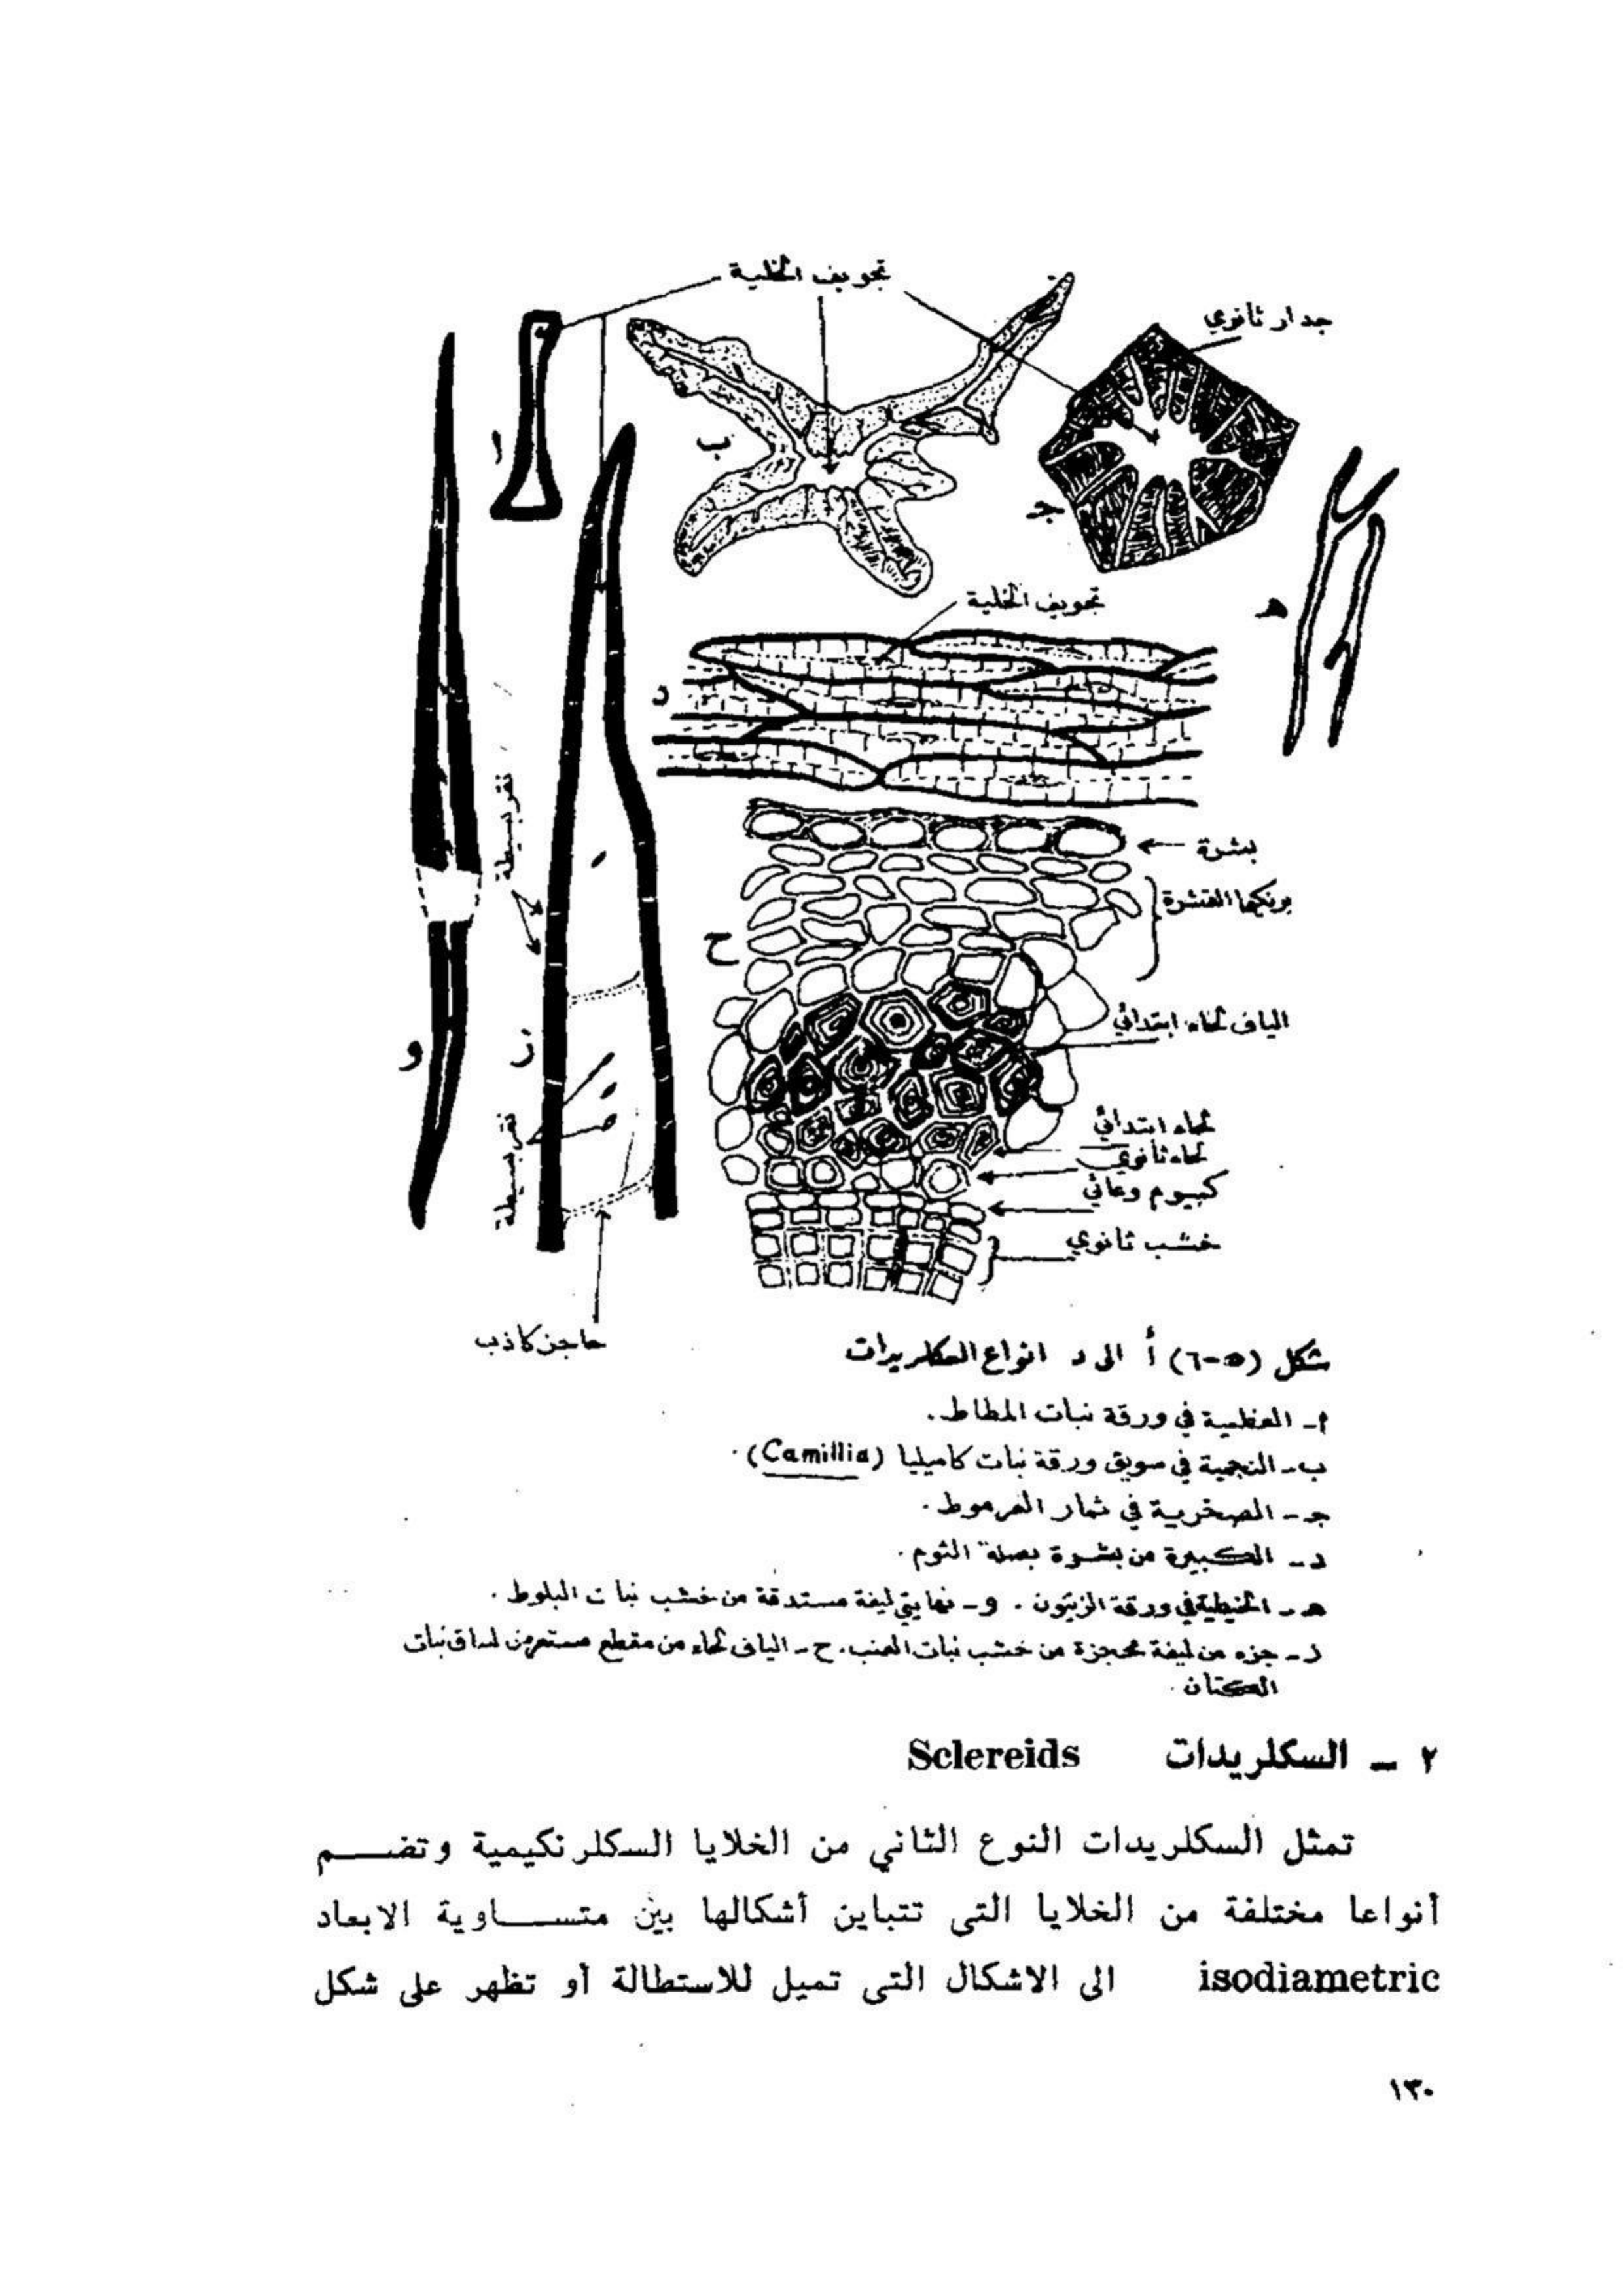 تجويف الخلية
جدار ثانوي
أ
ب
جـ
هـ
تجويف الخلية
د
نقر بسيطة
بشرة
برنكيما القشرة
ح
الياف لحاء ابتدائي
و
ز
نقر بسيطة
لحاء ابتدائي
لحاء ثانوي
كمبيوم وعائي
خشب ثانوي
حاجز كاذب
شكل (٥-٦) أ الى د انواع السكلريدات
أ- العظمية في ورقة نبات المطاط.
ب- النجمية في سويق ورقة نبات كاميليا (Camillia).
جـ- الصخرية في ثمار العرموط.
د- الكبيرة من بشرة بصلة الثوم.
هـ- الخيطية في ورقة الزيتون. و- نهايتي ليفة مستدقة من خشب نبات البلوط.
ز- جزء من ليفة محجزة من خشب نبات العنب. ح- الياف لحاء من مقطع مستعرض لساق نبات
الكتان.
٢ - السكلريدات Sclereids
تمثل السكلريدات النوع الثاني من الخلايا السكلرنكيمية وتضم
أنواعا مختلفة من الخلايا التي تتباين أشكالها بين متساوية الابعاد
isodiametric الى الاشكال التي تميل للاستطالة أو تظهر على شكل
١٣٠